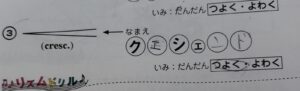 いみ：だんだん つよく・よわく
③
なまえ
クレシェンド
(cresc.)
いみ：だんだん つよく・よわく
リズムドリル